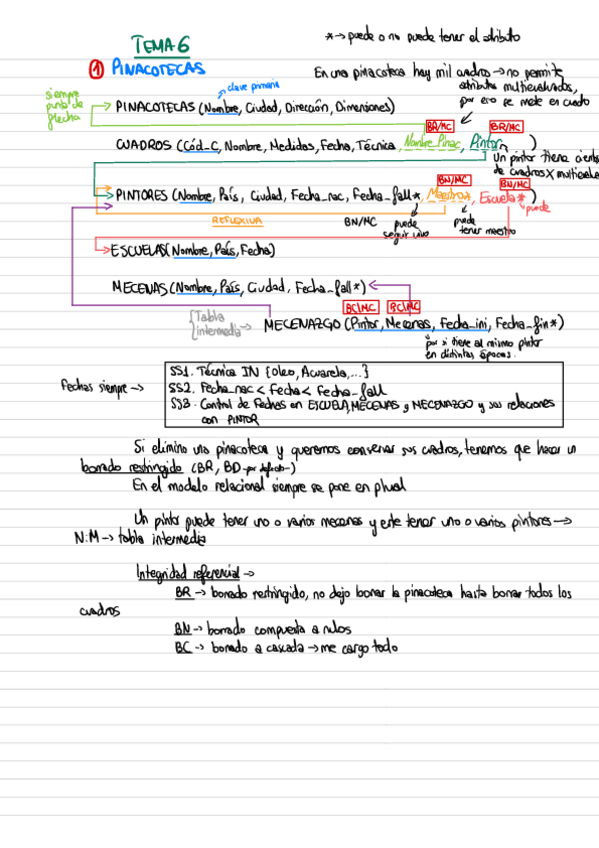 TEMA 6
* → puede o no puede tener el atributo
① PINACOTECAS
En una pinacoteca hay mil cuadros → no permite
atributos multievaluados,
por eso se mete en cuadro
clave primaria
siempre
punta de
flecha
PINACOTECAS (Nombre, Ciudad, Dirección, Dimensiones)
BR/MC BR/MC
CUADROS (Cód_C, Nombre, Medidas, Fecha, Técnica, Nombre_Pinac, Pintor)
Un pintor tiene cientos
de cuadros X multievaluado
BN/MC BN/MC
PINTORES (Nombre, País, Ciudad, Fecha_nac, Fecha_fall*, Maestro*, Escuela*)
puede
REFLEXIVA
BN/MC puede
seguir vivo
puede
tener maestro
ESCUELAS (Nombre, País, Fecha)
MECENAS (Nombre, País, Ciudad, Fecha_fall*)
BC/MC BC/MC
Tabla
intermedia →
MECENAZGO (Pintor, Mecenas, Fecha_ini, Fecha_fin*)
por si tiene al mismo pintor
en distintas épocas.
Fechas siempre →
SS1. Técnica IN {Oleo, Acuarela, ...}
SS2. Fecha_nac < Fecha < Fecha_fall
SS3. Control de Fechas en ESCUELA, MECENAS y MECENAZGO y sus relaciones
con PINTOR
Si elimino una pinacoteca y queremos conservar sus cuadros, tenemos que hacer un
borrado restringido (BR, BD-por defecto-)
En el modelo relacional siempre se pone en plural
Un pintor puede tener uno o varios mecenas y este tener uno o varios pintores →
N:M → tabla intermedia
Integridad referencial →
BR → borrado restringido, no dejo borrar la pinacoteca hasta borrar todos los
cuadros
BN → borrado compuesta a nulos
BC → borrado a cascada → me cargo todo